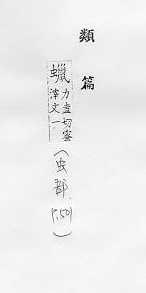 類篇
蠟
力盍切蜜
滓文一
(虫部、
P.501)